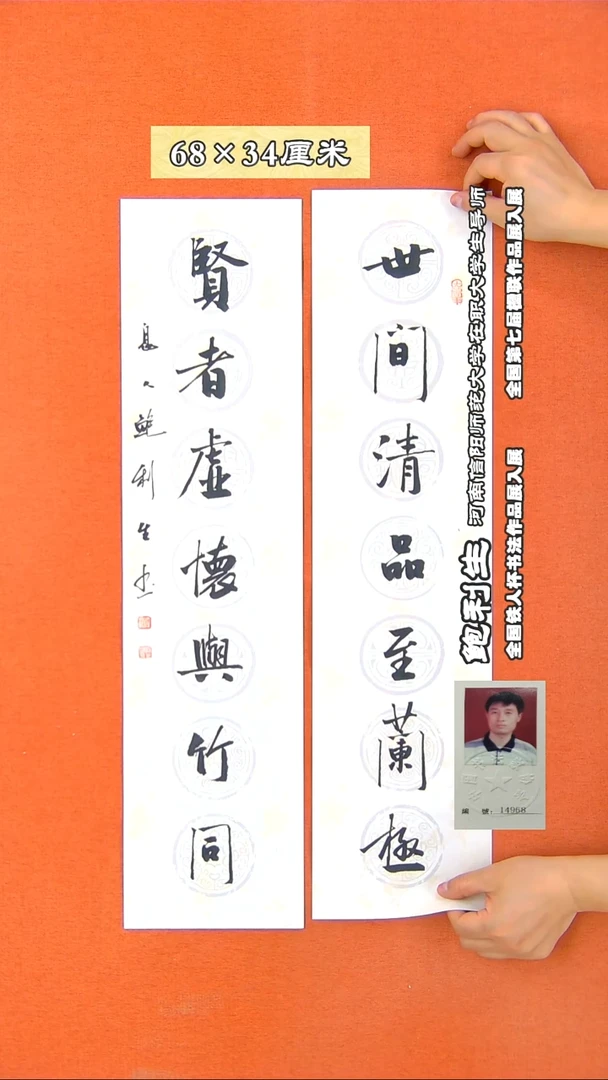 68×34厘米
世間清品至蘭極
賢者虛懷與竹同
息人鮑利生書
鲍利生 河南信阳师范大学在职大学生导师
全国第七届楹联作品展入展
全国铁人杯书法作品展入展
編 號: 14968